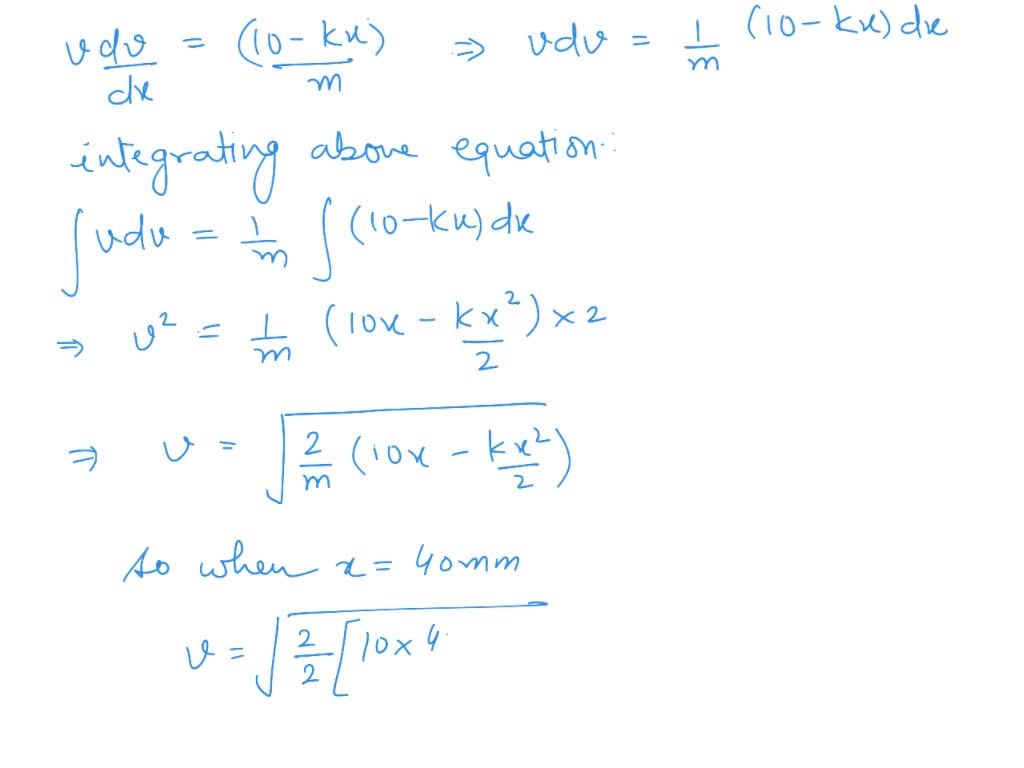 v dv/dx = (10 - kx)/m ⇒ vdv = 1/m (10 - kx) dx
integrating above equation:
∫ vdv = 1/m ∫ (10 - kx) dx
⇒ v² = 1/m (10x - kx²/2) × 2
⇒ v = √(2/m (10x - kx²/2))
so when x = 40mm
v = √(2/2 [10 × 4